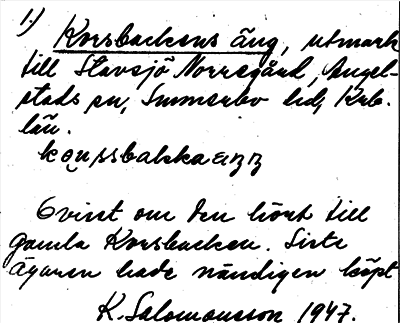 1.) Korsbackens äng, utmark
till Slavsjö Norregård, Ångel-
stads sn, Sunnerbo hd, Krb.
län.
Ovisst om den hört till
gamla Korsbacken. Siste
ägaren hade nämligen köpt
K. Salomonsson 1947.